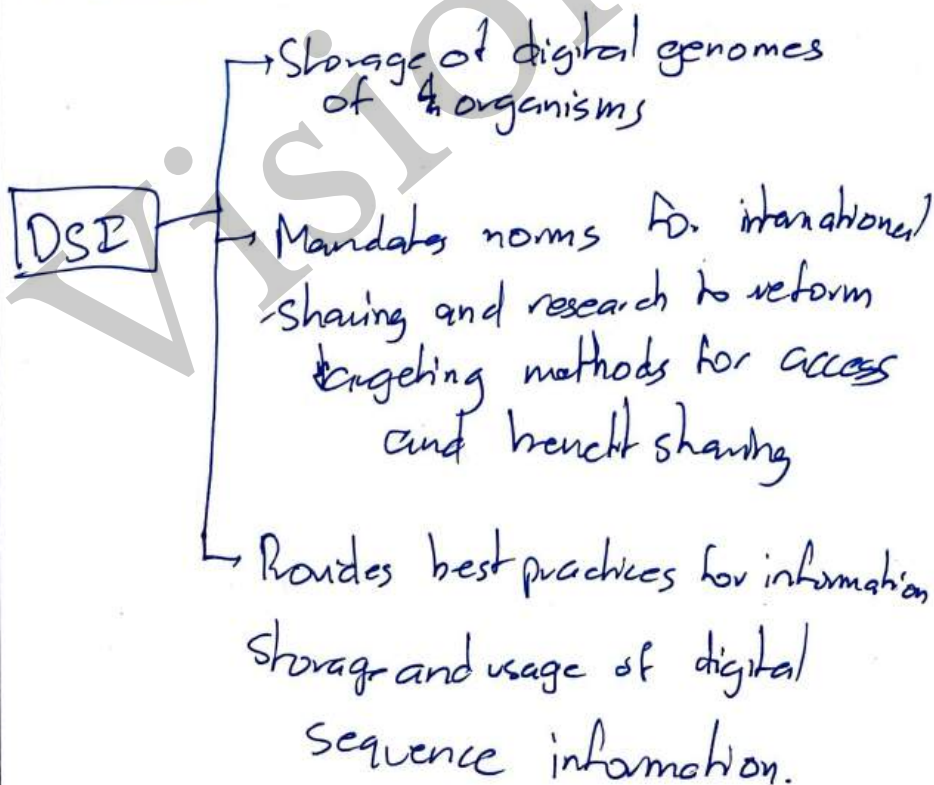 Storage of digital genomes
of organisms
DSI
Mandates norms for international
sharing and research to reform
targeting methods for access
and benefit sharing
Provides best practices for information
storage and usage of digital
sequence information.
Vision